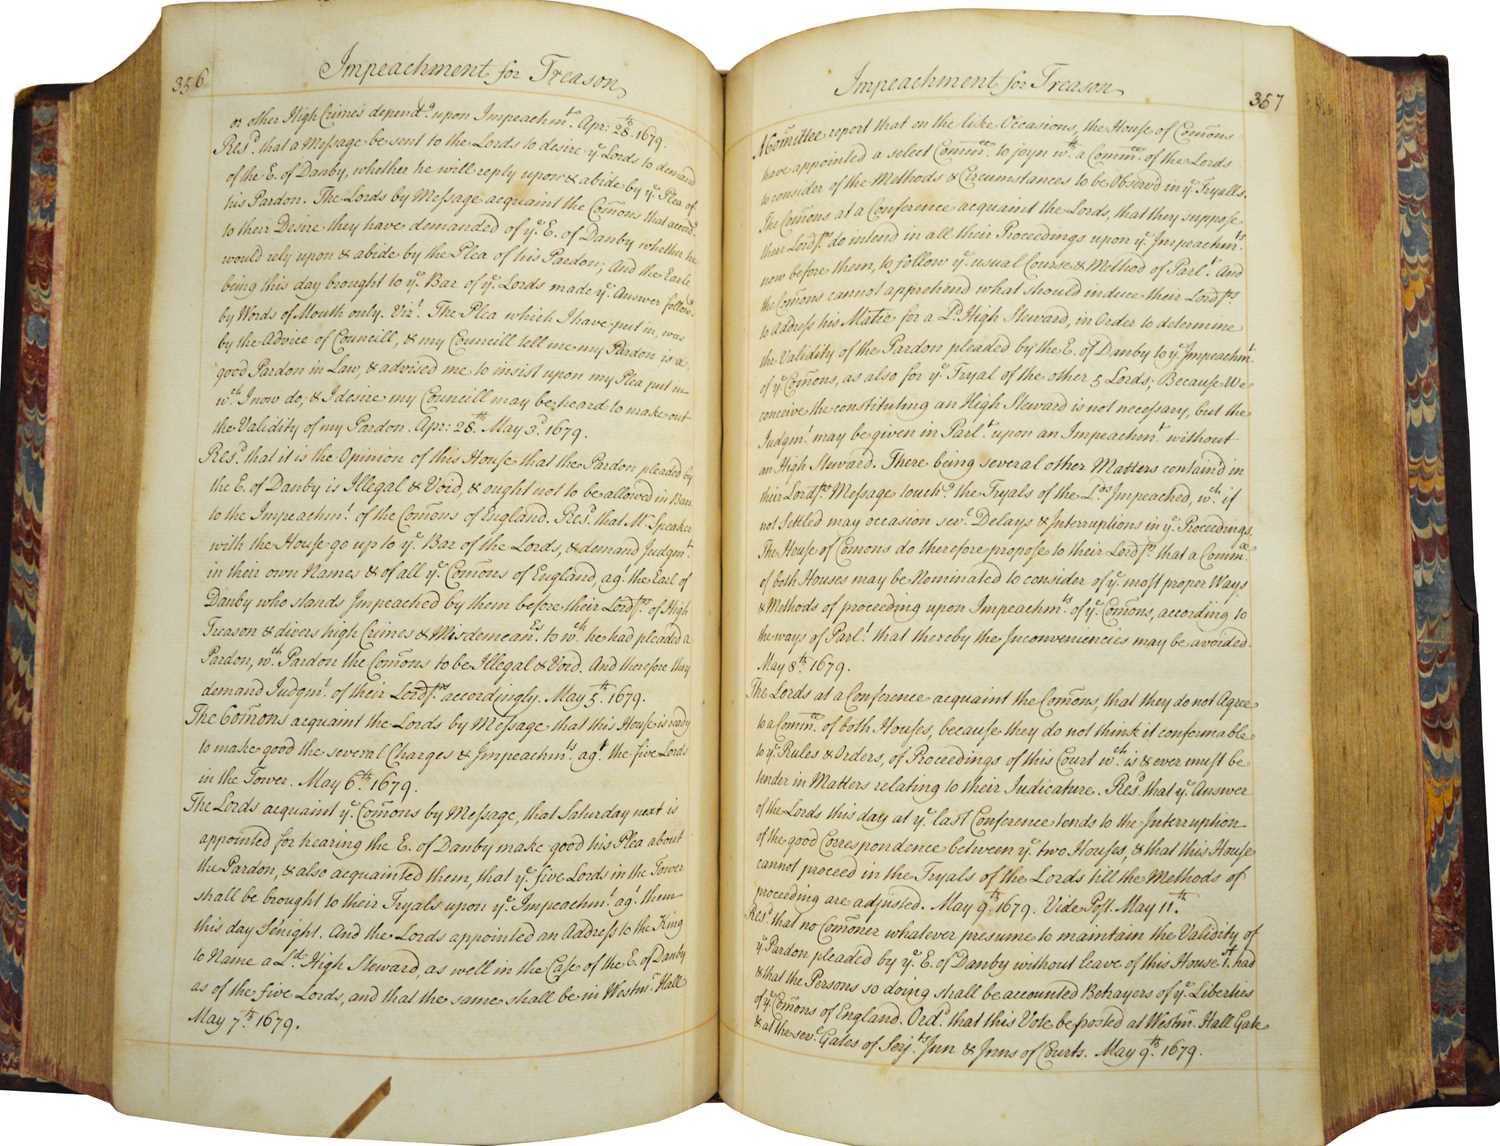 356
Impeachment for Treason
or other High Crimes depend.g upon Impeachm.t Apr: 28.th 1679.
Res.d that a Message be sent to the Lords to desire y.e Lords to demand
of the E. of Danby, whether he will reply upon & abide by y.e Plea of
his Pardon. The Lords by Message acquaint the Com̄ons that accord.g
to their Desire they have demanded of y.e E. of Danby whether he
would rely upon & abide by the Plea of his Pardon; And the Earle
being this day brought to y.e Bar of y.e Lords made y.e Answer follow.g
by Words of Mouth only. Viz.t The Plea which I have put in, was
by the Advice of Councill, & my Councill tell me my Pardon is a
good Pardon in Law, & advised me to insist upon my Plea put in
w.ch I now do, & I desire my Councill may be heard to make out
the Validity of my Pardon. Apr: 28.th May 3.d 1679.
Res.d that it is the Opinion of this House that the Pardon pleaded by
the E. of Danby is Illegal & Void, & ought not to be allowed in Bar
to the Impeachm.t of the Com̄ons of England. Res.d that M.r Speaker
with the House go up to y.e Bar of the Lords, & demand Judgm.t
in their own Names & of all y.e Com̄ons of England, ag.t the Earl of
Danby who stands Impeached by them before their Lordsps. of High
Treason & divers high Crimes & Misdemean.rs to w.ch he had pleaded a
Pardon, w.ch Pardon the Com̄ons to be Illegal & Void. And therefore they
demand Judgm.t of their Lordsps. accordingly. May 5.th 1679.
The Com̄ons acquaint the Lords by Message that this House is ready
to make good the several Charges & Impeachm.ts ag.t the five Lords
in the Tower. May 6.th 1679.
The Lords acquaint y.e Com̄ons by Message, that Saturday next is
appointed for hearing the E. of Danby make good his Plea about
the Pardon, & also acquainted them, that y.e five Lords in the Tower
shall be brought to their Tryals upon y.e Impeachm.t ag.t them
this day Senight. And the Lords appointed an Address to the King
to Name a L.d High Steward, as well in the Case of the E. of Danby
as of the five Lords, and that the same shall be in Westm.r Hall
May 7.th 1679.
Impeachment for Treason
357
A Com̄ittee report that on the like Occasions, the House of Com̄ons
have appointed a select Com̄ee. to joyn w.th a Com̄ee. of the Lords
to consider of the Methods & Circumstances to be Observed in y.e Tryalls.
The Com̄ons at a Conference acquaint the Lords, that they suppose
their Lordsps. do intend in all their Proceedings upon y.e Impeachm.ts
now before them, to follow y.e usual Course & Method of Parl.t And
the Com̄ons cannot apprehend what should induce their Lordsps
to Address his Matie for a L.d High Steward, in Order to determine
the Validity of the Pardon pleaded by the E. of Danby to y.e Impeachm.t
of y.e Com̄ons, as also for y.e Tryal of the other 5 Lords; Because We
conceive the constituting an High Steward is not necessary, but the
Judgm.t may be given in Parl.t upon an Impeachm.t without
an High Steward. There being several other Matters containd in
their Lordsps. Message touch.g the Tryals of the L.ds Impeached, w.ch if
not Settled may occasion sev.l Delays & Interruptions in y.e Proceedings.
The House of Com̄ons do therefore propose to their Lordsps. that a Com̄ee.
of both Houses may be Nominated to consider of y.e most proper Ways
& Methods of proceeding upon Impeachm.ts of y.e Com̄ons, according to
the ways of Parl.t that thereby the Inconveniencies may be avoided.
May 8.th 1679.
The Lords at a Conference acquaint the Com̄ons, that they do not Agree
to a Com̄ee. of both Houses, because they do not think it conformable
to y.e Rules & Orders, of Proceedings of this Court w.ch is & ever must be
tender in Matters relating to their Judicature. Res.d that y.e Answer
of the Lords this day at y.e last Conference tends to the Interruption
of the good Correspondence between y.e two Houses, & that this House
cannot proceed in the Tryals of the Lords till the Methods of
proceeding are adjusted. May 9.th 1679. Vide Post. May 11.th
Res.d that no Com̄oner whatever presume to maintain the Validity of
y.e Pardon pleaded by y.e E. of Danby without leave of this House 1.st had
& that the Persons so doing shall be accounted Betrayers of y.e Liberties
of y.e Com̄ons of England. Ord.d that this Vote be posted at Westm.r Hall Gate
& at the sev.l Gates of Serj.ts Inn & Inns of Courts. May 9.th 1679.